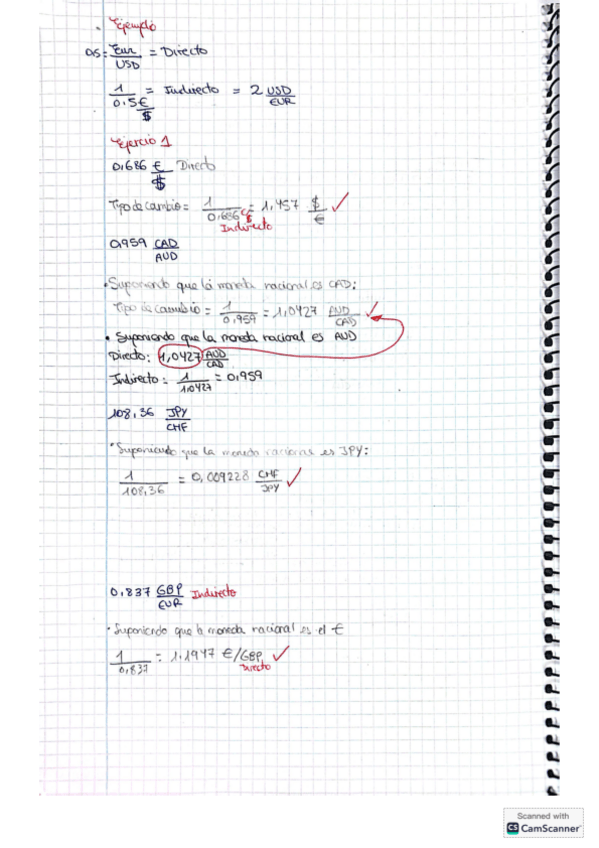 Ejemplo
0,5 = Eur/USD = Directo
1/0,5 €/$ = Indirecto = 2 USD/EUR
Ejercio 1
0,686 €/$ Directo
Tipo de cambio = 1/0,686 €/$ = 1,457 $/€ ✓
Indirecto
0,959 CAD/AUD
• Suponiendo que la moneda nacional es CAD:
Tipo de cambio = 1/0,959 = 1,0427 AUD/CAD ✓
• Suponiendo que la moneda nacional es AUD
Directo: 1,0427 AUD/CAD
Indirecto: 1/1,0427 = 0,959
108,36 JPY/CHF
• Suponiendo que la moneda nacional es JPY:
1/108,36 = 0,009228 CHF/JPY ✓
0,837 GBP/EUR Indirecto
• Suponiendo que la moneda nacional es el €
1/0,837 = 1.1947 €/GBP ✓
Directo
Scanned with
CS CamScanner